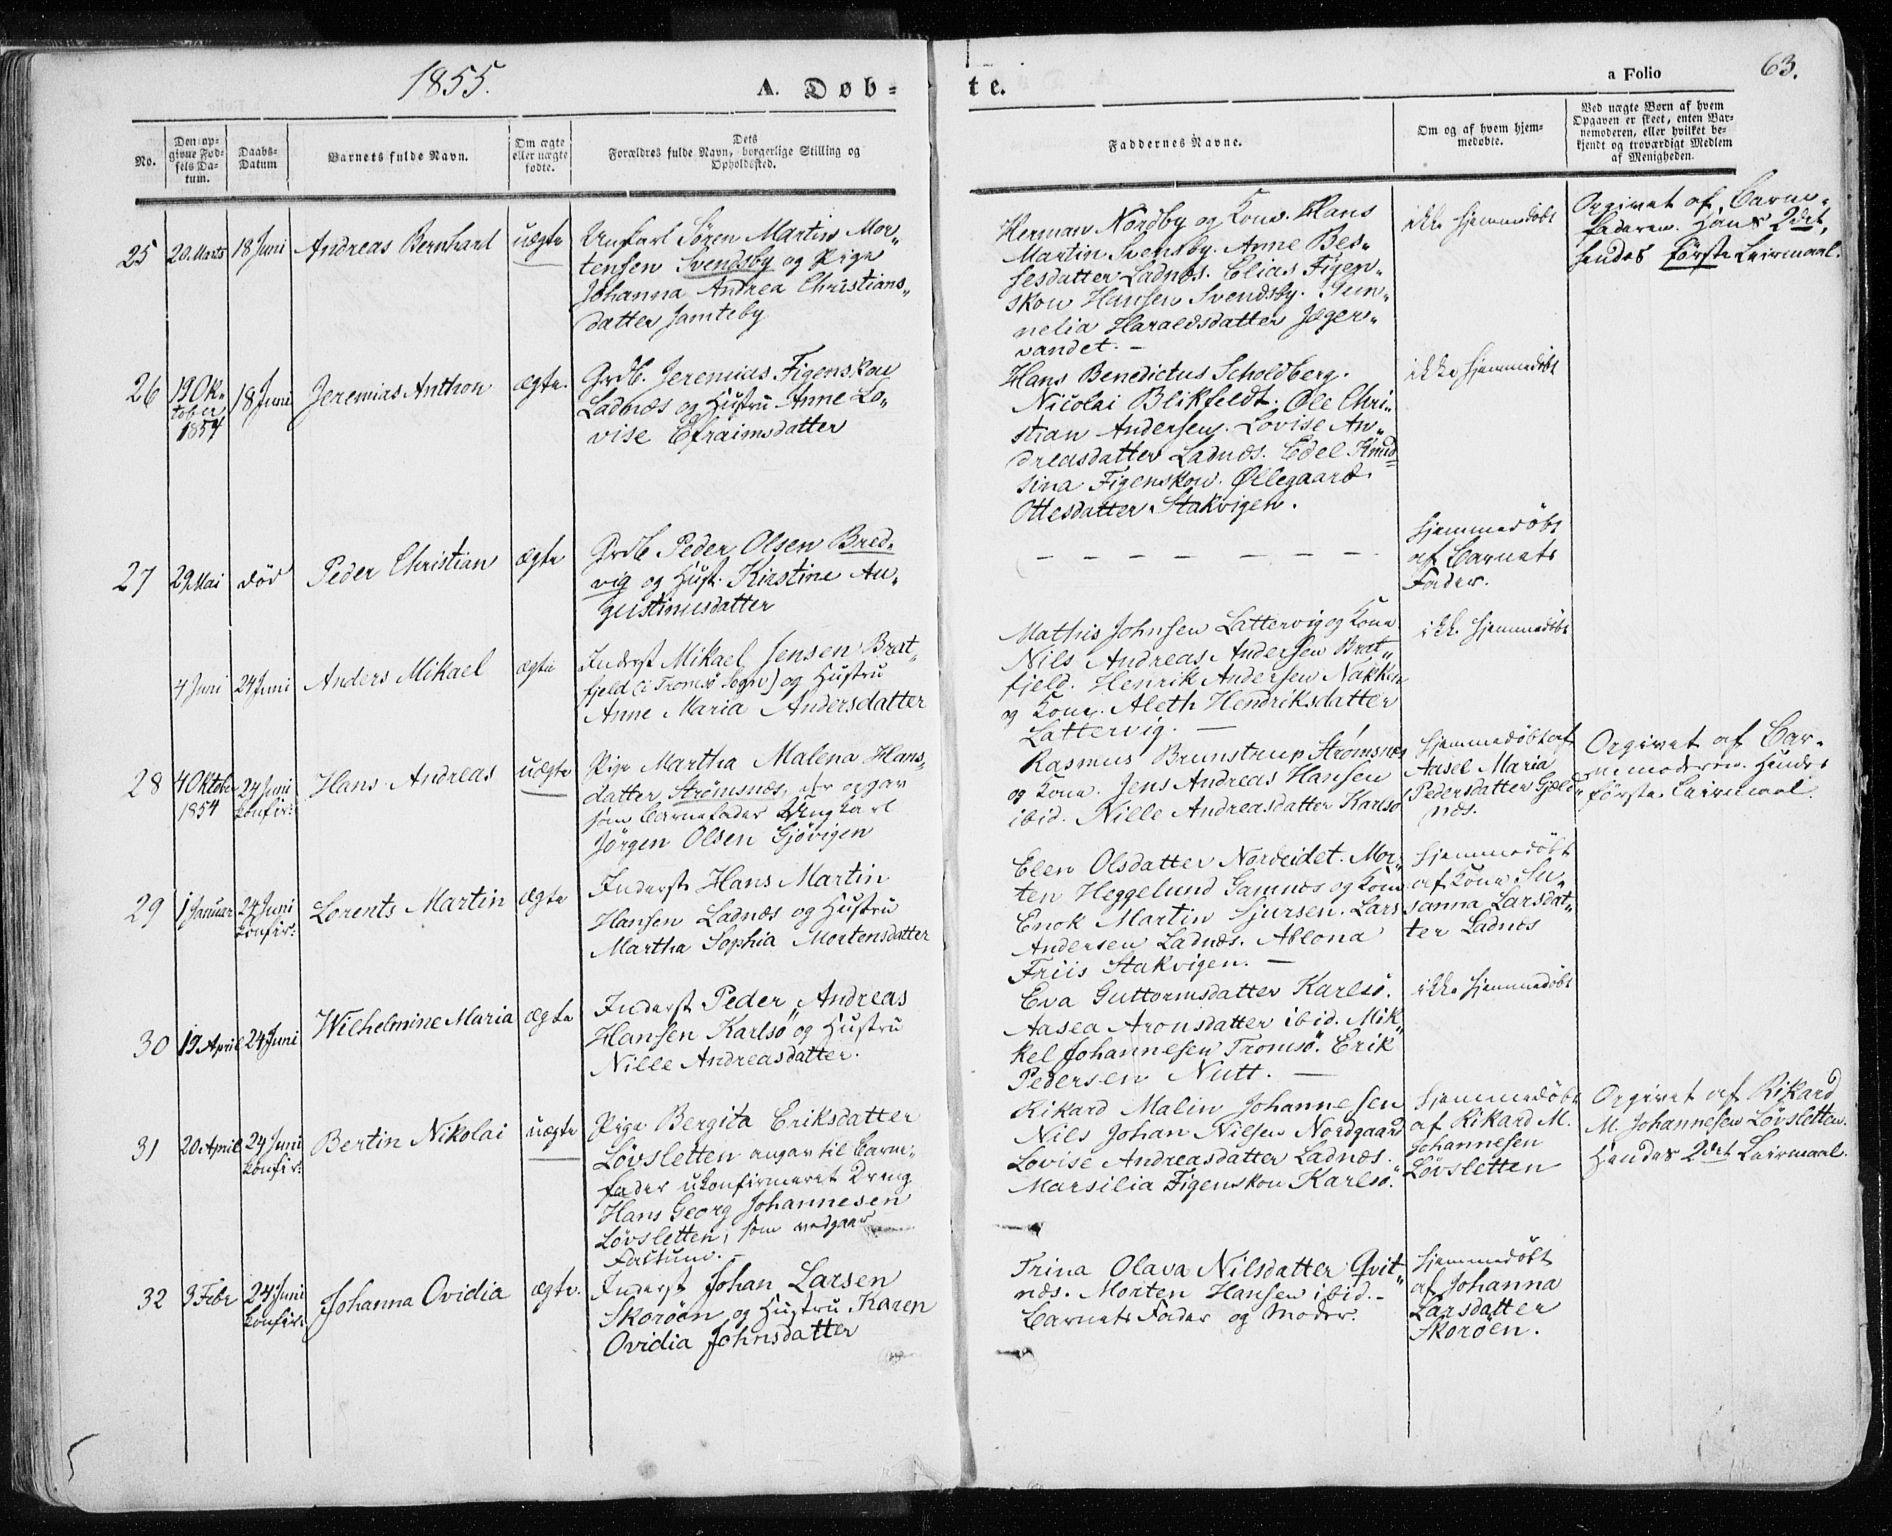 1855.
A. Døb-
te.
a Folio
63.
No.
Den op-
givne Fød-
sels Da-
tum.
Daabs-
Datum
Barnets fulde Navn.
Om ægte
eller uægte
fødte.
Dets
Forældres fulde Navn, borgerlige Stilling og
Opholdssted.
Faddernes Navne.
Om og af hvem hjem-
medøbte.
Ved uægte Børn af hvem
Opgaven er skeet, enten Bar-
nemoderen, eller hvilket be-
kjendt og troværdigt Medlem
af Menigheden.
25
20. Marts
18 Juni
Andreas Bernhart
uægte
Ungkarl Søren Martin Mor-
tensen Svendsby og Pige
Johanna Andrea Christians-
datter Jamteby
Herman Nordby og Kone. Hans
Martin Svensby. Anne Bes-
sesdatter Ladnæs. Elias Figen-
skou Hansen Svendsby. Gun-
nelia Haraldsdatter Jæger-
vandet. -
ikke hjemmedøbt
Opgivet af Barne-
faderen. Hans 2det,
hendes første Leirmaal.
26
19 Ok-
tober
1854
18 Juni
Jeremias Anthon
ægte.
Grdb. Jeremias Figenskou
Ladnæs og Hustru Anne Lo-
vise Efraimsdatter
Hans Benedictus Scholdberg.
Nicolai Blikfeldt. Ole Chri-
stian Andersen. Lovise An-
dreasdatter Ladnæs. Edel Knud-
sina Figenskou. Øllegaard
Ottesdatter Stakvigen.
ikke hjemmedøbt
27
29 Mai
død
Peder Christian
ægte
Grdb. Peder Olsen Bred-
vig og Hust. Kirstine Au-
gustinusdatter
- - - - - - - -
hjemmedøbt
af Barnets
Fader.
4 Juni
24 Juni
Anders Mikael
ægte
Inderst Mikael Jensen Brat-
fjeld (i Tromsø Sogn) og Hustru
Anne Maria Andersdatter
Mathis Johnsen Lattervig og Kone
Nils Andreas Andersen Brat-
fjeld. Henrik Andersen Nakken
og Kone. Aleth Hendriksdatter
Lattervig. -
ikke hjemmedøbt
28
4 Oktober
1854
24 Juni
konfir:
Hans Andreas
uægte
Pige Martha Malena Hans-
datter Strømsnæs, der opgav
som Barnefader Ungkarl
Jørgen Olsen Gjövigen
Rasmus Brunstrup Strømsnes
og Kone. Jens Andreas Hansen
ibid. Nille Andreasdatter Karlsø
hjemmedøbt af
Aasel Maria
Pedersdatter Gjøld-
næs.
Opgivet af Bar-
nemoderen. Hendes
første Leirmaal.
29
1 Januar
24 Juni
konfir:
Lorents Martin
ægte
Inderst Hans Martin
Hansen Ladnæs og Hustru
Martha Sophia Mortensdatter
Elen Olsdatter Nordeidet. Mor-
ten Heggelund Gamnæs og Kone
Enok Martin Sjursen. Lars
Andersen Ladnæs. Ablona
Friis Stakvigen. -
hjemmedøbt
af Kone Su-
sanna Larsdat-
ter Ladnæs
30
19 April
24 Juni
Wilhelmine Maria
ægte
Inderst Peder Andreas
Hansen Karlsö og Hustru
Nille Andreasdatter.
Eva Guttormsdatter Karlsö.
Aasea Aronsdatter ibid. Mik-
kel Johannesen Tromsö. Erik
Pedersen Nutt. -
ikke hjemmedøbt
31
20 April
24 Juni
konfir:
Bertin Nikolai
uægte
Pige Bergita Eriksdatter
Løvsletten angav til Barne-
fader ukonfirmeret Dreng
Hans Georg Johannesen
Løvsletten, som vedgaar
Factum. -
Rikard Malin Johannesen
Nils Johan Nilsen Nordgaard
Lovise Andreasdatter Ladnæs.
Marsilia Figenskou Karlsö.
hjemmedøbt
af Rikard M.
Johannesen
Løvsletten
Opgivet af Rikard
M. Johannesen Løvsletten.
Hendes 2det Leirmaal.
32
3 Febr
24 Juni
konfir:
Johanna Ovidia
ægte.
Inderst Johan Larsen
Skorøen og Hustru Karen
Ovidia Johnsdatter
Trina Olava Nilsdatter Qvit-
næs. Morten Hansen ibid. -
Barnets Fader og Moder.
hjemmedøbt
af Johanna
Larsdatter
Skorøen.